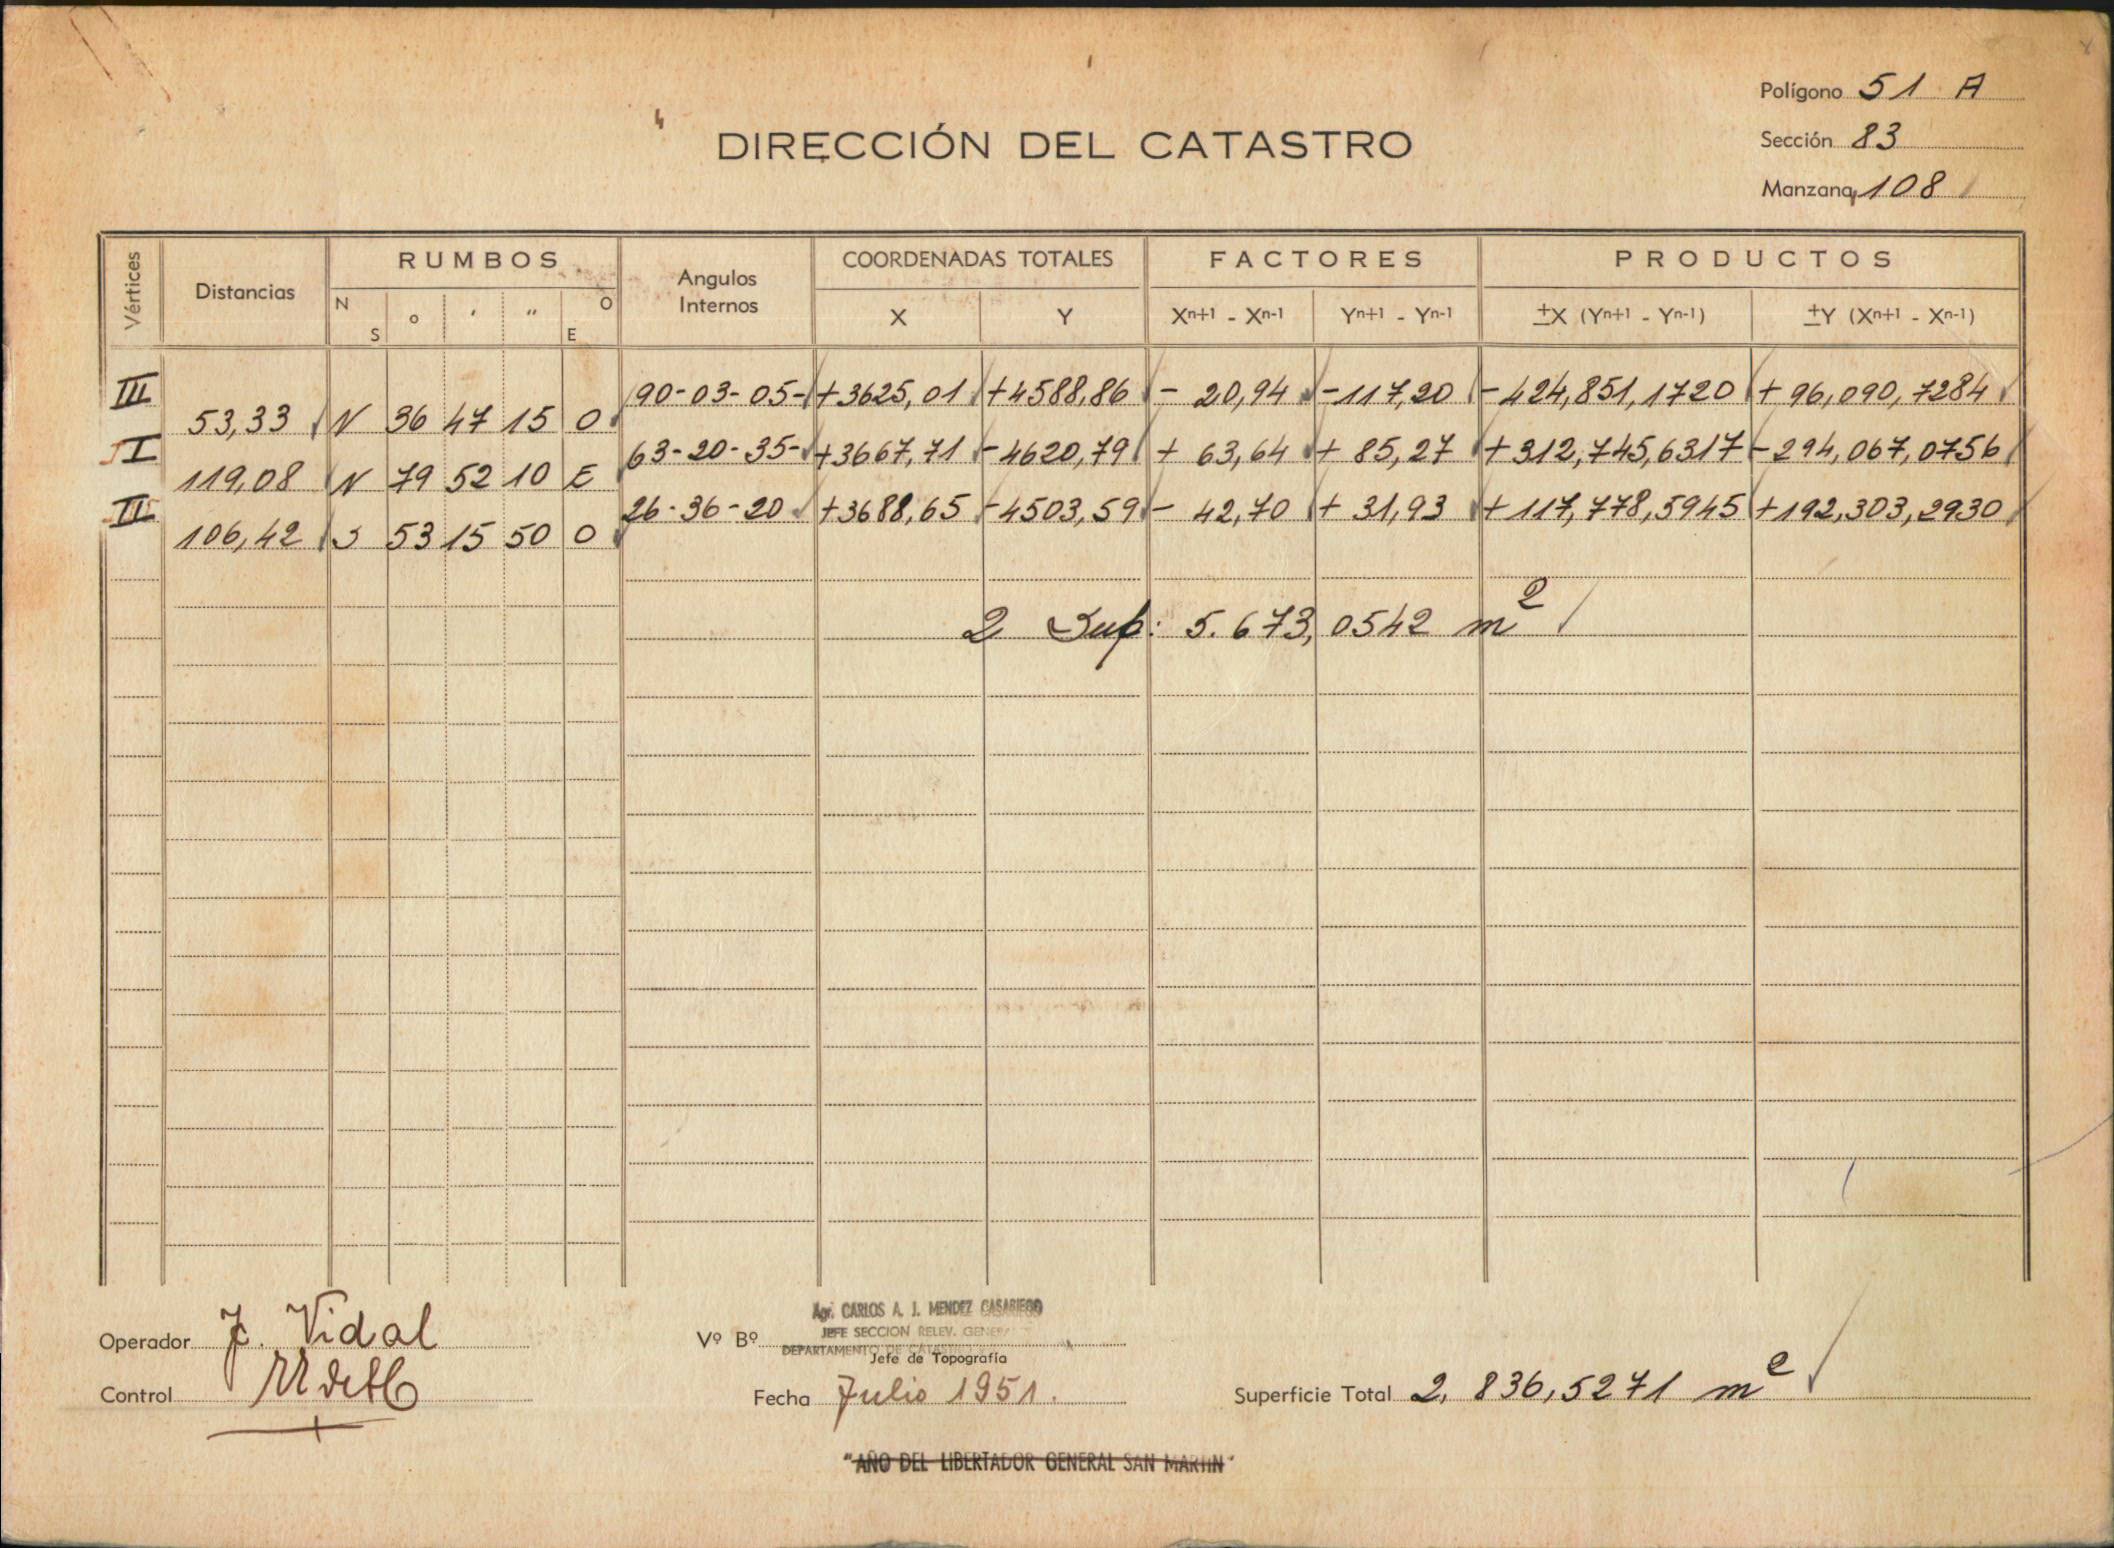 Polígono 51 A
DIRECCIÓN DEL CATASTRO
Sección 83
Manzana 108
Vértices Distancias RUMBOS Angulos Internos COORDENADAS TOTALES FACTORES PRODUCTOS
N S ° ' " O E X Y Xn+1 - Xn-1 Yn+1 - Yn-1 ±X (Yn+1 - Yn-1) ±Y (Xn+1 - Xn-1)
III 90-03-05- +3625,01 +4588,86 - 20,94 -117,20 -424,851,1720 + 96,090,7284
53,33 N 36 47 15 O
I 63-20-35- +3667,71 -4620,79 + 63,64 + 85,27 +312,745,6317 -294,067,0756
119,08 N 79 52 10 E
II 26-36-20 +3688,65 -4503,59 - 42,70 + 31,93 +117,778,5945 +192,303,2930
106,42 S 53 15 50 O
2 Sup: 5.673,0542 m²
Agr. CARLOS A. J. MENDEZ CASABIEGO
JEFE SECCION RELEV. GENER
DEPARTAMENTO DE CATASTRO
Operador J. Vidal Vº Bº
Jefe de Topografía
Control
Fecha Julio 1951.
Superficie Total 2,836,5271 m²
"AÑO DEL LIBERTADOR GENERAL SAN MARTIN"